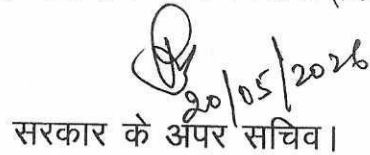 20/05/2026
सरकार के अपर सचिव।